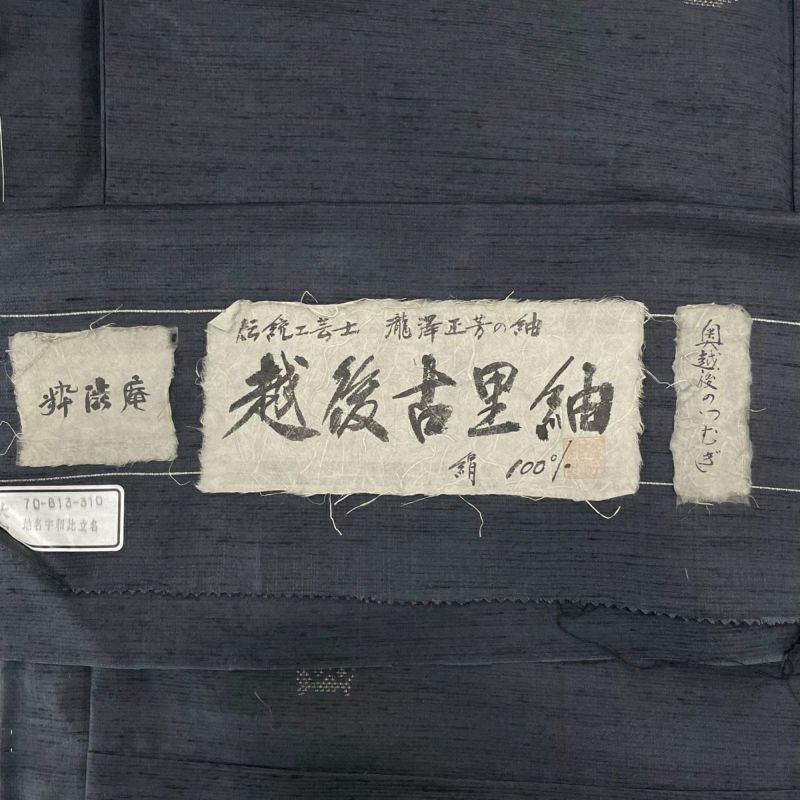 伝統工芸士 瀧澤正芳の紬
越後古里紬
絹 100%
奥越後のつむぎ
70-B13-310